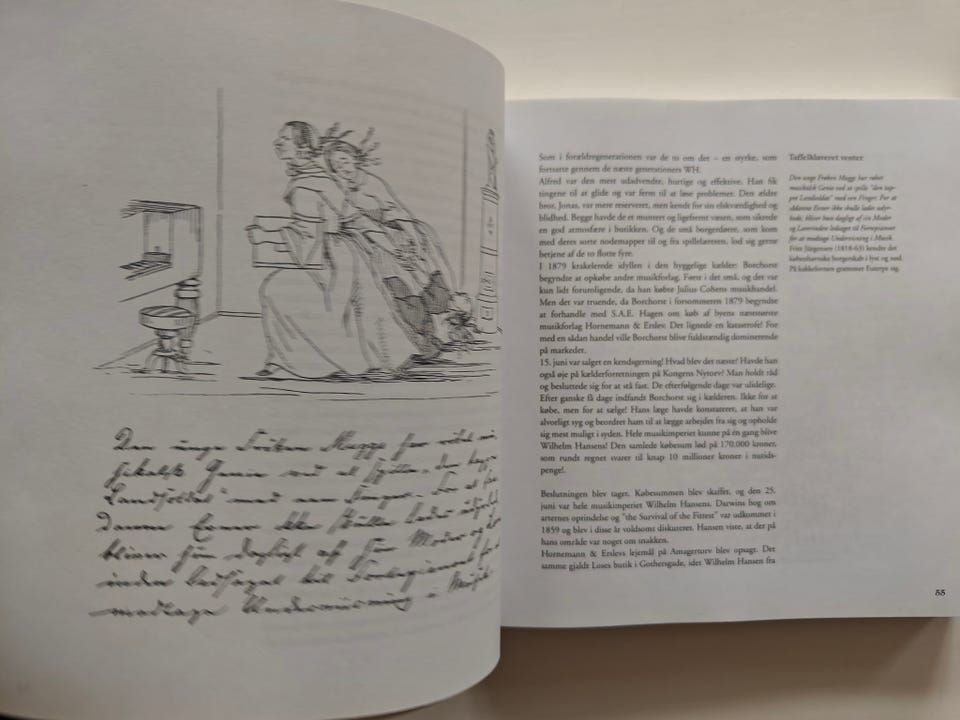 Den unge Frøken Mugge har røbet mu-
sikalsk Genie ved at spille "den tapp
Landsoldat" med een Finger. For at saa
danne Evner ikke skulle lades udyrkede
bliver hun dagligt af sin Moder og Lære
inden ledsaget til Fortepianoet for at
modtage Underviisning i Musik.
Som i forældregenerationen var de to om det – en styrke, som
fortsatte gennem de næste generationers WH.
Alfred var den mest udadvendte, hurtige og effektive. Han fik
tingene til at glide og var ferm til at løse problemer. Den ældre
bror, Jonas, var mere reserveret, men kendt for sin elskværdighed og
blidhed. Begge havde de et muntert og ligefremt væsen, som sikrede
en god atmosfære i butikken. Og de små borgerdøtre, som kom
med deres sorte nodemapper til og fra spillelæreren, lod sig gerne
betjene af de to flotte fyre.
I 1879 krakelerede idyllen i den hyggelige kælder: Borchorst
begyndte at opkøbe andre musikforlag. Først i det små, og det var
kun lidt foruroligende, da han købte Julius Cohens musikhandel.
Men det var truende, da Borchorst i forsommeren 1879 begyndte
at forhandle med S.A.E. Hagen om køb af byens næststørste
musikforlag Hornemann & Erslev. Det lignede en katastrofe! For
med en sådan handel ville Borchorst blive fuldstændig dominerende
på markedet.
15. juni var salget en kendsgerning! Hvad blev det næste? Havde han
også øje på kælderforretningen på Kongens Nytorv? Man holdt råd
og besluttede sig for at stå fast. De efterfølgende dage var ulidelige.
Efter ganske få dage indfandt Borchorst sig i kælderen. Ikke for at
købe, men for at sælge! Hans læge havde konstateret, at han var
alvorligt syg og beordret ham til at lægge arbejdet fra sig og opholde
sig mest muligt i syden. Hele musikimperiet kunne på én gang blive
Wilhelm Hansens! Den samlede købesum lød på 170.000 kroner,
som rundt regnet svarer til knap 10 millioner kroner i nutids-
penge!.
Beslutningen blev taget. Købesummen blev skaffet, og den 25.
juni var hele musikimperiet Wilhelm Hansens. Darwins bog om
arternes oprindelse og "the Survival of the Fittest" var udkommet i
1859 og blev i disse år voldsomt diskuteret. Hansen viste, at der på
hans område var noget om snakken.
Hornemann & Erslevs lejemål på Amagertorv blev opsagt. Det
samme gjaldt Loses butik i Gothersgade, idet Wilhelm Hansen fra
Taffelklaveret venter
Den unge Frøken Mugge har røbet
musikalsk Genie ved at spille "den tap-
per Landsoldat" med een Finger. For at
sådanne Evner ikke skulle lades udyr-
kede, bliver hun dagligt af sin Moder
og Lærerinden ledsaget til Fortepianoet
for at modtage Underviisning i Musik.
Fritz Jürgensen (1818-63) kendte det
københavnske borgerskab i lyst og nød.
På kakkelovnen græmmer Euterpe sig.
55